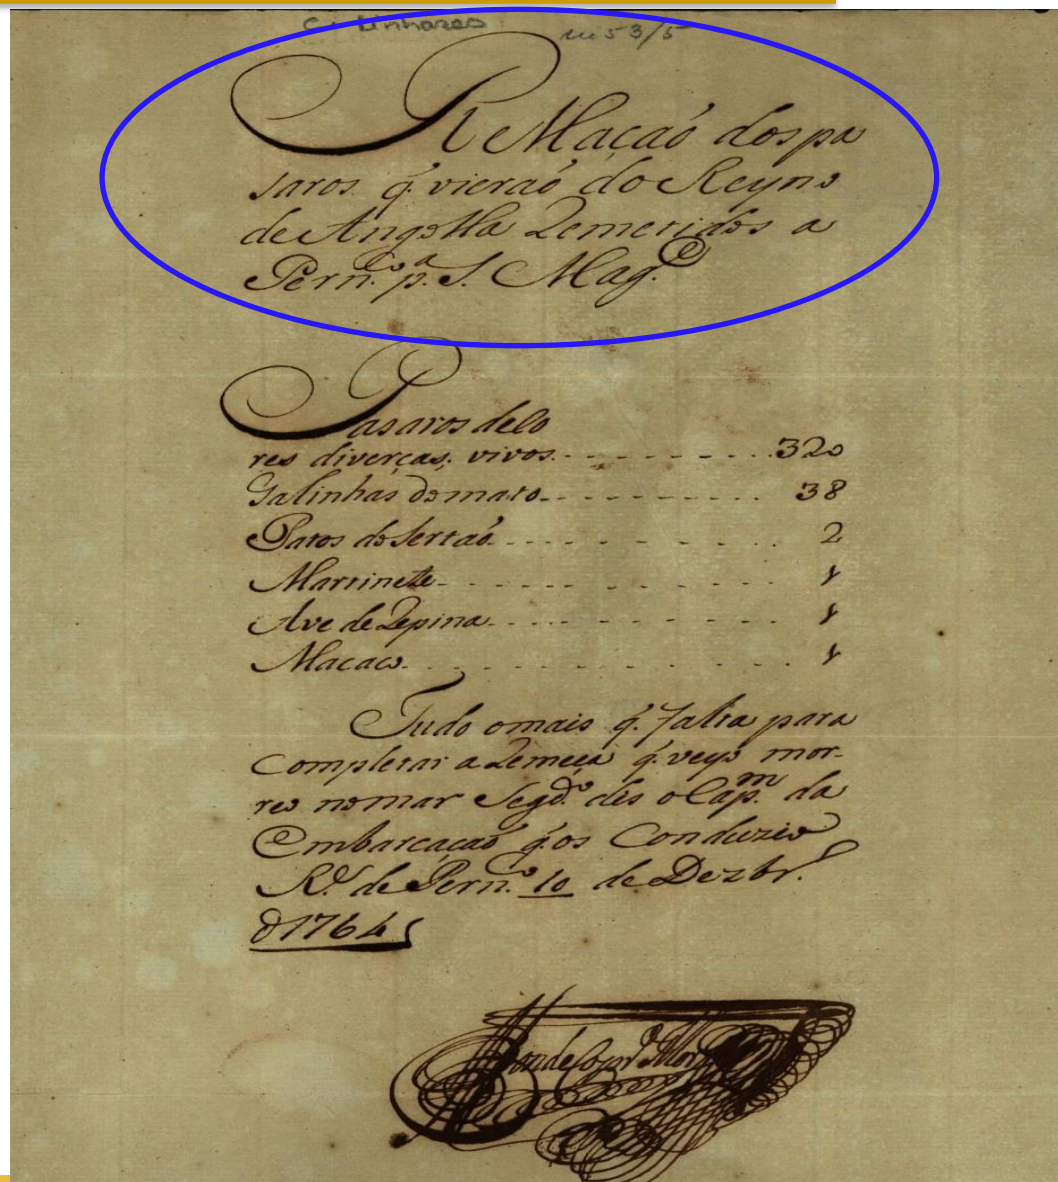 C. Linhares m 53/5
ReMaçaó dos pa
saros q̃. vieraó do Reyno
de Angolla Remetidos a
Pern.^co p.^a S. Mag.^e
Pasaros de Co
res diverças, vivos. - - - - - - - - - - - 320
Galinhas do mato - - - - - - - - - - - 38
Patos do Sertaó - - - - - - - - - - - 2
Martinete - - - - - - - - - - - 1
Ave de Repina - - - - - - - - - - - 1
Macaco. - - - - - - - - - - - 1
Tudo omais q̃. falta para
completar a Remeça q̃. veyo mor-
reo nomar Segd.^o dis o Cap.^m da
Embarcacaó q̃. os Conduzio
R.^e de Pern.^co 10 de Dezbr.^o
d 1764